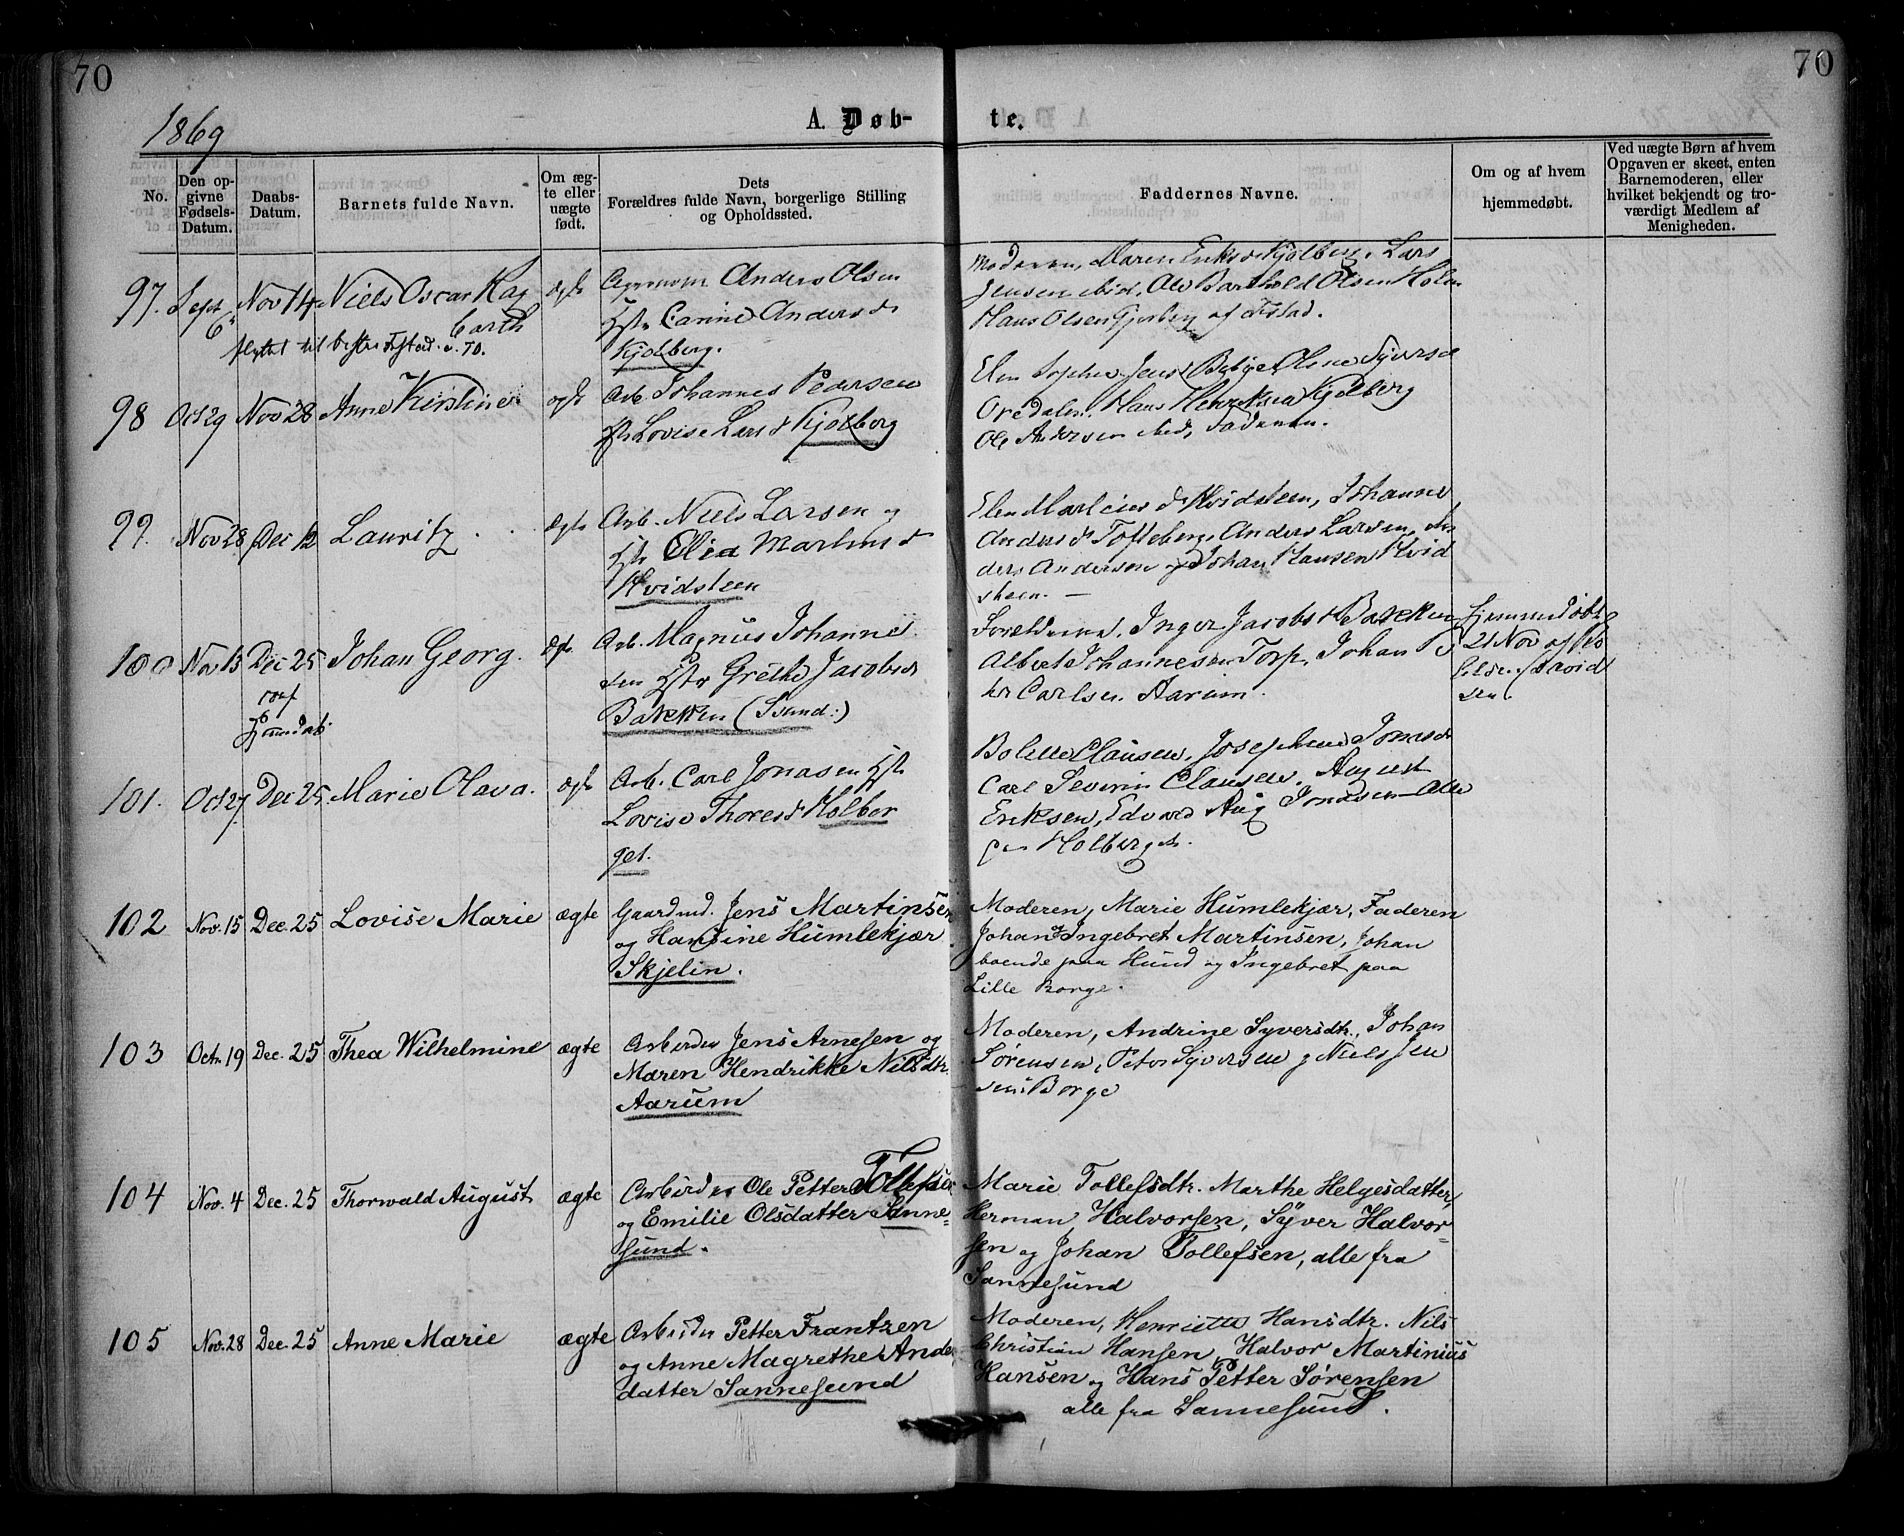 70
70
1869
A. Døb-
te.
No.
Den op-
givne
Fødsels-
Datum.
Daabs-
Datum.
Barnets fulde Navn.
Om æg-
te eller
uægte
født.
Dets
Forældres fulde Navn, borgerlige Stilling
og Opholdssted.
Faddernes Navne.
Om og af hvem
hjemmedøbt.
Ved uægte Børn af hvem
Opgaven er skeet, enten
Barnemoderen, eller
hvilket bekjendt og tro-
værdigt Medlem af
Menigheden.
97. Sept 6 Nov 14 Niels Oscar Kag ægte
Anders Olsen
Hstr Carine Anders d
Kjølberg.
Moderen, Maren Eriks d Kjølberg, Lars
Jensen ibid, Ole Barthold Olsen Holm
Hans Olsen af
98 Oct 29 Nov 28 Anne Kirstine ægte
Arb. Johannes Pedersen
Hstr Lovise Lars d Kjølberg
Elen Sophie Jens d
Oredalen. Hans Henriksen Kjølberg
Ole Andersen ibid, Faderen.
99. Nov 28 Dec 12 Lauritz ægte
Arb. Niels Larsen og
Hstr Olea Martins d
Hvidsteen
Elen d Hvidsteen, Johanne
Anders d Tofteberg, Anders Larsen, An
ders Andersen og Johan Hansen Hvid
steen. —
100 Nov 13 Dec 25 Johan Georg. ægte
Arb. Magnus Johanne
sen Hstr Grethe Jacobs d
Bakken (Svend:)
Forældrene, Inger Jacobs d Bakken
Albert Johannesen Torp, Johan Pe
ter Carlsen Aarum.
Hjemmedøbt
21 Nov af
David
sen.
101. Oct 27 Dec 25 Marie Olava. ægte
Arb. Carl Jonasen Hstr
Lovise Thores d Holber
get.
Bolette Clausen, Josephine Jonas d
Carl Severin Clausen, August
Eriksen, Edvard Aug Jonasen – Alle
paa Holberget.
102 Nov. 15 Dec. 25 Lovise Marie ægte
Gaardmd. Jens Martinsen
og Hansine Humlekjær
Skjelin.
Moderen, Marie Humlekjær, Faderen
Johan og Ingebret Martinsen, Johan
boende paa Hund og Ingebret paa
Lille Borge.
103 Octr. 19 Dec. 25 Thea Wilhelmine ægte
Arbeider Jens Arnesen og
Maren Hendrikke Nilsdtr.
Aarum
Moderen, Andrine Syversdtr., Johan
Sørensen, Peter Syversen og Niels Jen
sen Borge
104 Nov. 4 Dec. 25 Thorwald August ægte
Arbeider Ole Petter Tollefsen
og Emilie Olsdatter Sanne-
sund.
Marie Tollefsdtr. Marthe Helgesdatter,
Herman Halvorsen, Syver Halvor=
sen og Johan Tollefsen, alle fra
Sannesund
105 Nov. 28 Dec. 25 Anne Marie ægte
Arbeider Petter Frantzen
og Anne Magrethe Anders
datter Sannesund
Moderen, Henriette Hansdtr. Nils
Christian Hansen, Halvor Martinius
Hansen og Hans Petter Sørensen
alle fra Sannesund.